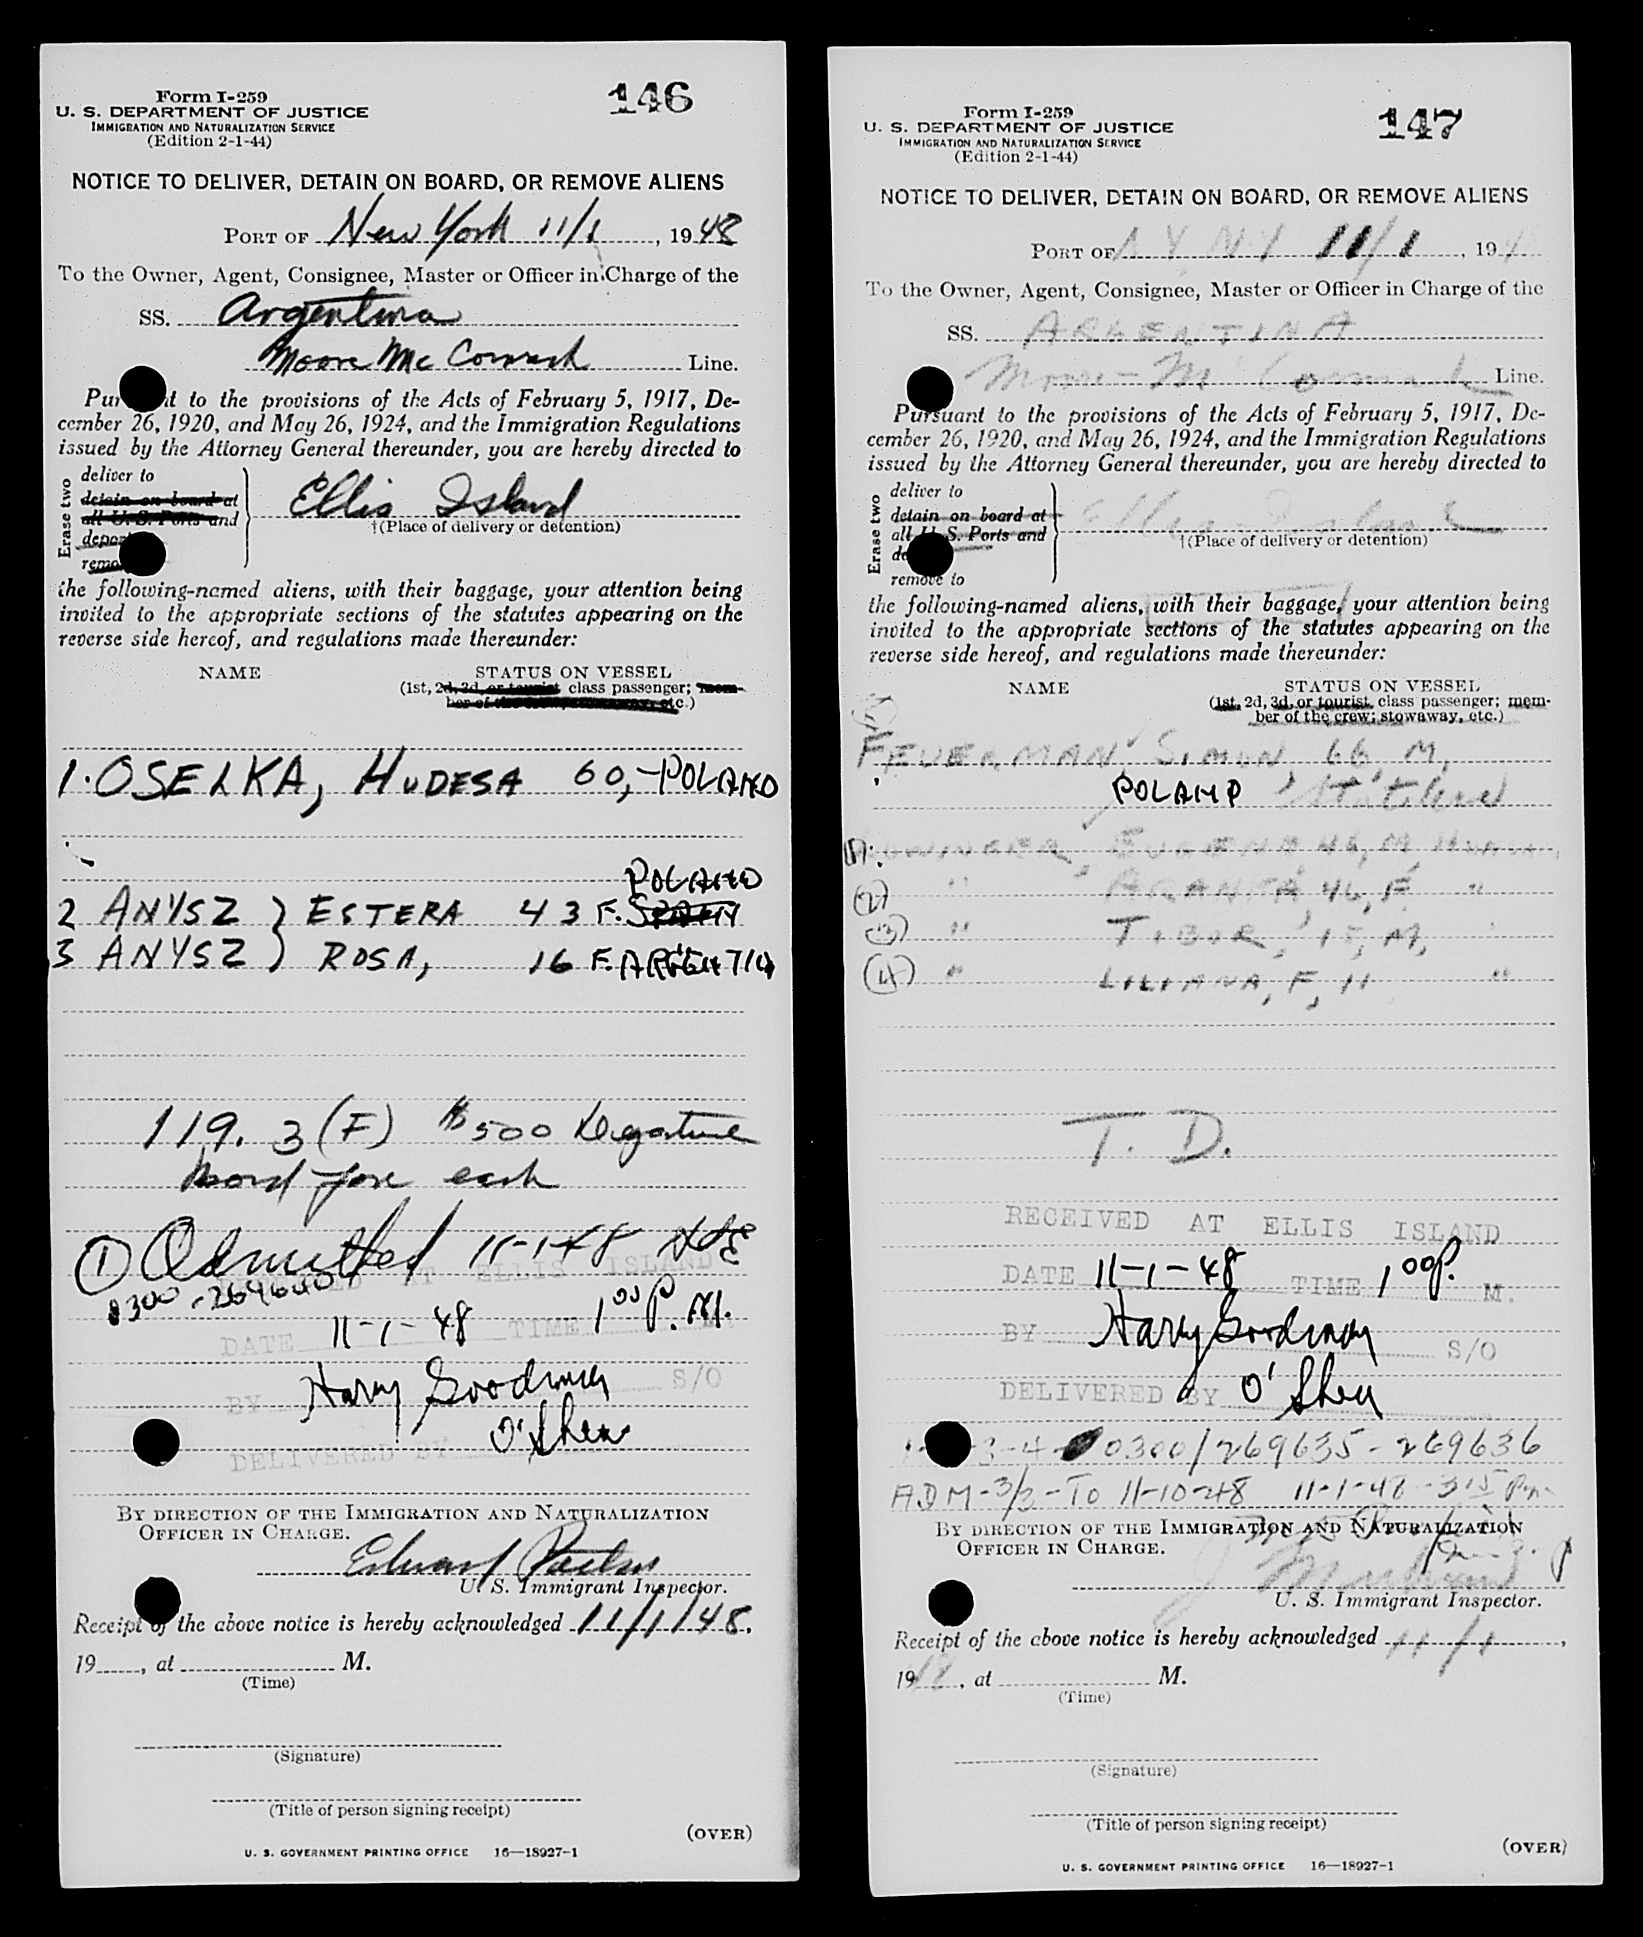 Form I-259
U. S. DEPARTMENT OF JUSTICE
IMMIGRATION AND NATURALIZATION SERVICE
(Edition 2-1-44)
146
NOTICE TO DELIVER, DETAIN ON BOARD, OR REMOVE ALIENS
PORT OF New York 11/1, 1948
To the Owner, Agent, Consignee, Master or Officer in Charge of the
SS. Argentina
Moore McCormack Line.
Pursuant to the provisions of the Acts of February 5, 1917, De-
cember 26, 1920, and May 26, 1924, and the Immigration Regulations
issued by the Attorney General thereunder, you are hereby directed to
Erase two
deliver to
detain on board at
all U. S. Ports and
deport
remove
Ellis Island
†(Place of delivery or detention)
the following-named aliens, with their baggage, your attention being
invited to the appropriate sections of the statutes appearing on the
reverse side hereof, and regulations made thereunder:
NAME STATUS ON VESSEL
(1st, 2d, 3d, or tourist class passenger; mem-
ber of the crew; stowaway, etc.)
1. OSELKA, HUDESA 60, - POLAND
POLAND
2 ANYSZ } ESTERA 43 F. SPAIN
3 ANYSZ } ROSA, 16 F. ARGENTIN
119. 3 (F) $500 Departure
bond for each
① Admitted 11-1-48
RECEIVED AT ELLIS ISLAND
0300-269640
DATE 11-1-48 TIME 1 00 P. M.
BY Harry Goodman S/O
O'Shea
DELIVERED BY
BY DIRECTION OF THE IMMIGRATION AND NATURALIZATION
OFFICER IN CHARGE.
Edward
U. S. Immigrant Inspector.
Receipt of the above notice is hereby acknowledged 11/1/48,
19, at M.
(Time)
(Signature)
(Title of person signing receipt)
(OVER)
U. S. GOVERNMENT PRINTING OFFICE 16—18927-1
Form I-259
U. S. DEPARTMENT OF JUSTICE
IMMIGRATION AND NATURALIZATION SERVICE
(Edition 2-1-44)
147
NOTICE TO DELIVER, DETAIN ON BOARD, OR REMOVE ALIENS
PORT OF N Y N Y 11/1, 194
To the Owner, Agent, Consignee, Master or Officer in Charge of the
SS. ARGENTINA
Moore-McCormack Line.
Pursuant to the provisions of the Acts of February 5, 1917, De-
cember 26, 1920, and May 26, 1924, and the Immigration Regulations
issued by the Attorney General thereunder, you are hereby directed to
Erase two
deliver to
detain on board at
all U. S. Ports and
de
remove to
Ellis Island
†(Place of delivery or detention)
the following-named aliens, with their baggage, your attention being
invited to the appropriate sections of the statutes appearing on the
reverse side hereof, and regulations made thereunder:
NAME STATUS ON VESSEL
(1st, 2d, 3d, or tourist class passenger; mem-
ber of the crew; stowaway, etc.)
FEUERMAN, SIMON 66, M,
POLAND
(1) EUGENE 46, M
(2) " 46, F "
(3) " TIBOR, 15, M,
(4) " LILIANA, F, 11 "
T. D.
RECEIVED AT ELLIS ISLAND
DATE 11-1-48 TIME 1 00 P. M.
BY Harry Goodman S/O
DELIVERED BY O'Shea
3-4 - 0300/269635-269636
ADM-3/2-To 11-10-48 11-1-48 - 3 15 Pm
BY DIRECTION OF THE IMMIGRATION AND NATURALIZATION
OFFICER IN CHARGE.
U. S. Immigrant Inspector.
Receipt of the above notice is hereby acknowledged 11/1,
1948, at M.
(Time)
(Signature)
(Title of person signing receipt)
(OVER)
U. S. GOVERNMENT PRINTING OFFICE 16—18927-1